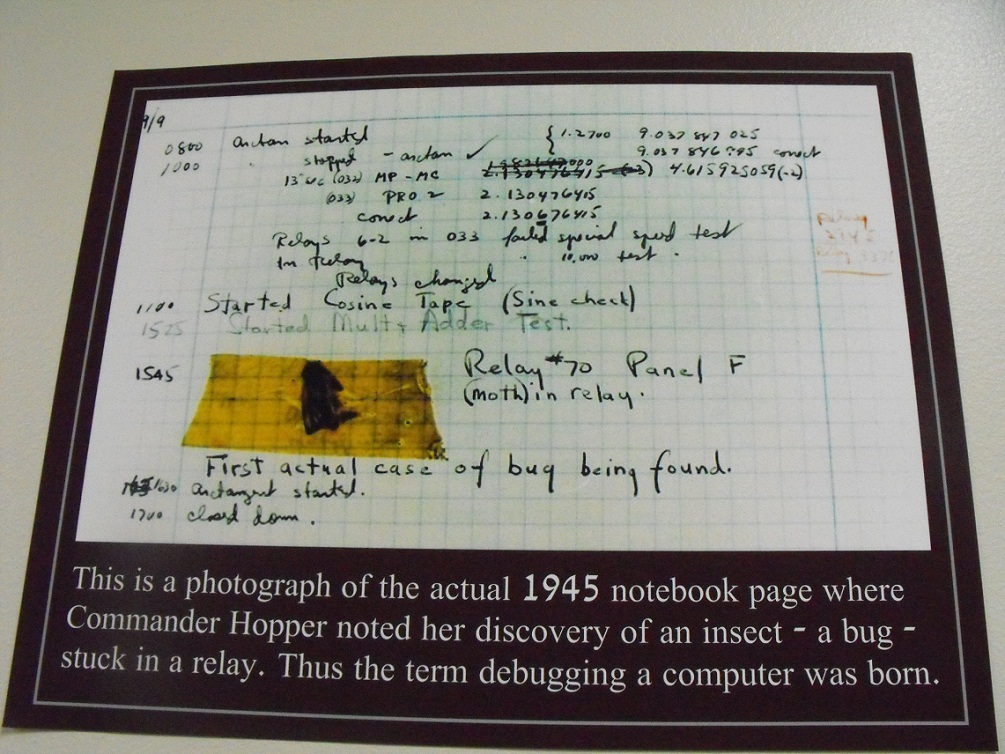 9/9
0800 arctan started { 1.2700 9.037 847 025
1000 " stopped - arctan ✓ 9.037 846 995 correct
13" uc (032) MP - MC 2.130476415 (-3) 4.615925059(-2)
(033) PRO 2 2.130476415
correct 2.130676415
Relays 6-2 in 033 failed special speed test
In Relay " 10,000 test.
Relays changed
1100 Started Cosine Tape (Sine check)
1525 Started Mult + Adder Test.
1545 Relay #70 Panel F
(moth) in relay.
First actual case of bug being found.
1630 arctangent started.
1700 closed down.
Relay
This is a photograph of the actual 1945 notebook page where
Commander Hopper noted her discovery of an insect - a bug -
stuck in a relay. Thus the term debugging a computer was born.